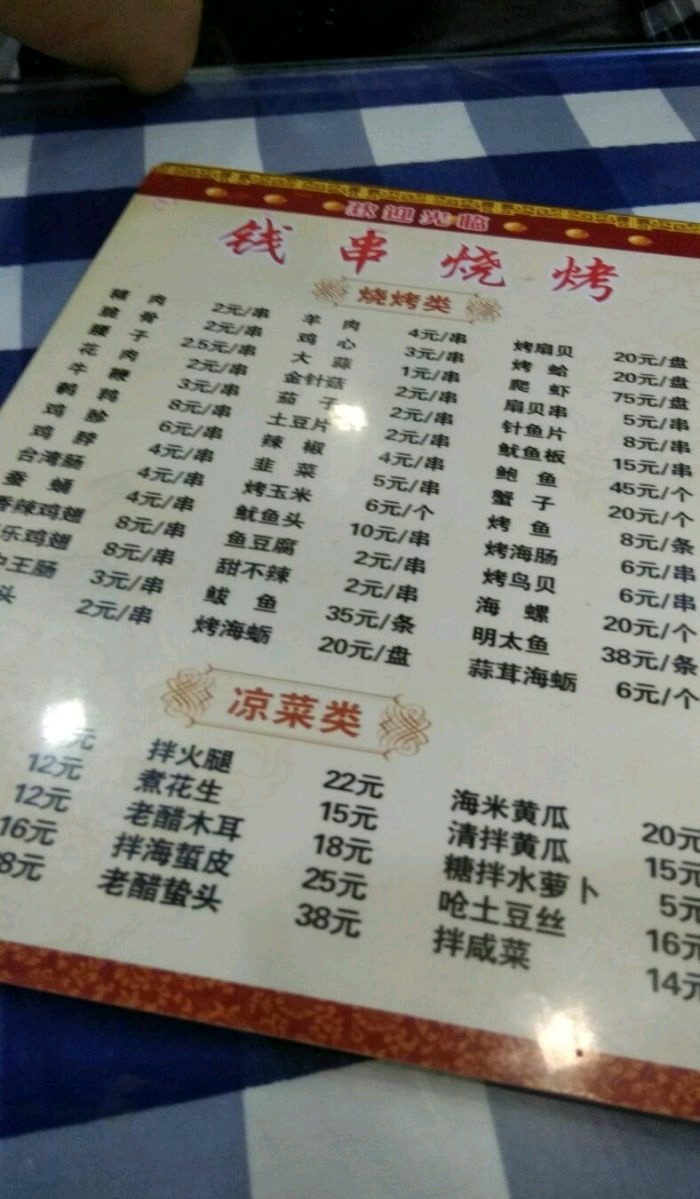 欢迎光临
钱串烧烤
烧烤类
猪肉 2元/串 羊肉 4元/串 烤扇贝 20元/盘
脆骨 2元/串 鸡心 3元/串 烤蛤 20元/盘
腰子 2.5元/串 大蒜 1元/串 爬虾 75元/盘
花肉 2元/串 金针菇 2元/串 扇贝串 5元/串
牛鞭 3元/串 茄子 2元/串 针鱼片 8元/串
鹌鹑 8元/串 土豆片 2元/串 鱿鱼板 15元/串
鸡胗 6元/串 辣椒 4元/串 鲍鱼 45元/个
鸡脖 4元/串 韭菜 5元/串 蟹子 20元/个
台湾肠 4元/串 烤玉米 6元/个 烤鱼 8元/条
蚕蛹 4元/串 鱿鱼头 10元/串 烤海肠 6元/串
香辣鸡翅 8元/串 鱼豆腐 2元/串 烤鸟贝 6元/串
乐鸡翅 8元/串 甜不辣 2元/串 海螺 20元/个
王肠 3元/串 鲅鱼 35元/条 明太鱼 38元/条
头 2元/串 烤海蛎 20元/盘 蒜茸海蛎 6元/个
凉菜类
元 拌火腿 22元 海米黄瓜 20元
12元 煮花生 15元 清拌黄瓜 15元
12元 老醋木耳 18元 糖拌水萝卜 5元
16元 拌海蜇皮 25元 呛土豆丝 16元
8元 老醋蛰头 38元 拌咸菜 14元